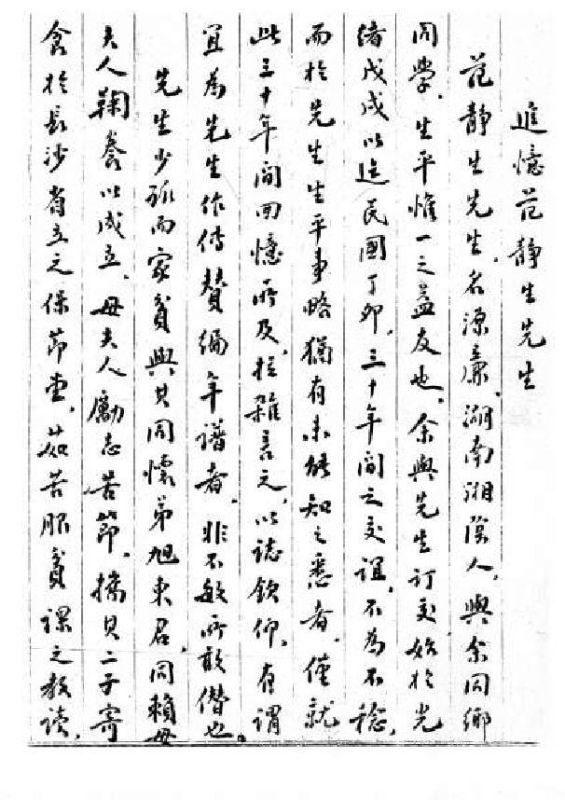 追憶范靜生先生
范靜生先生、名源廉、湖南湘陰人、與余同鄉
同學、生平惟一之益友也。余與先生訂交、始於光
緒戊戌以迄民國丁卯、三十年間之交誼、不為不稔、
而於先生生平事略猶有未能知之悉者、僅就
此三十年間回憶所及、拉雜言之、以誌欽仰、有謂
宜為先生作傳贊編年譜者、非不敏所敢僭也。
先生少孤而家貧與其同懷弟旭東君、同賴母
夫人鞠養以成立、母夫人勵志苦節、攜其二子寄
食於長沙省立之保節堂、茹苦服貧課之教讀、